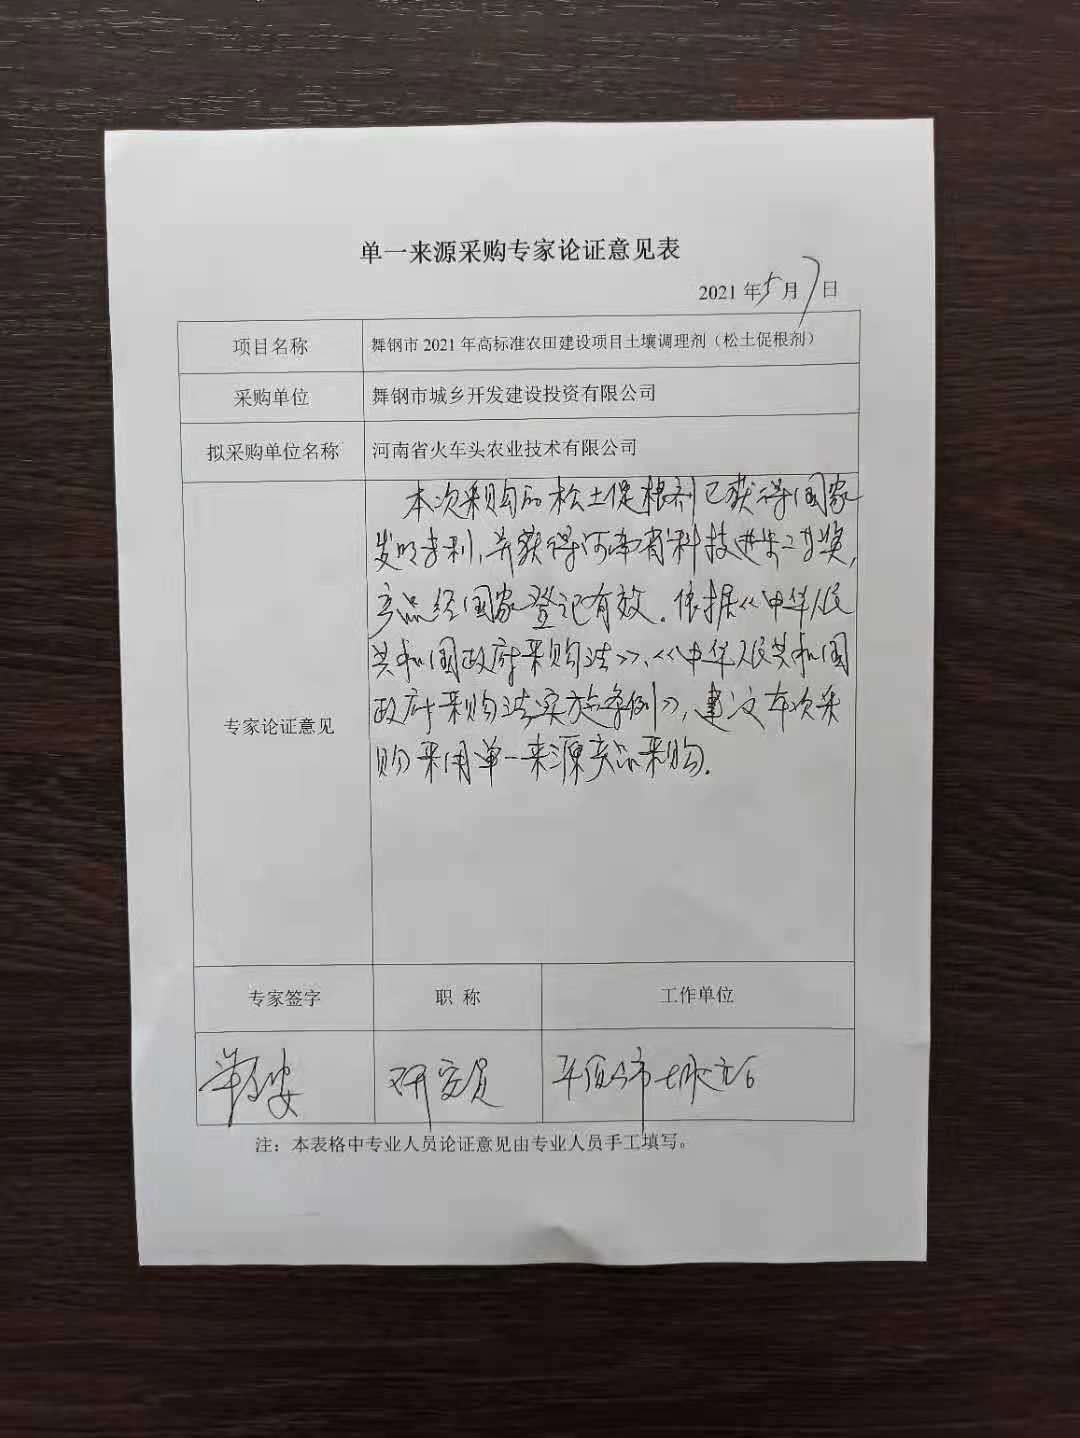 单一来源采购专家论证意见表
2021年5月7日
项目名称 舞钢市2021年高标准农田建设项目土壤调理剂（松土促根剂）
采购单位 舞钢市城乡开发建设投资有限公司
拟采购单位名称 河南省火车头农业技术有限公司
专家论证意见
本次采购的松土促根剂已获得国家
发明专利，并获得河南省科技进步二等奖，
产品经国家登记有效。依据《中华人民
共和国政府采购法》、《中华人民共和国
政府采购法实施条例》，建议本次采
购采用单一来源产品采购。
专家签字 职 称 工作单位
研究员 平顶山市
注：本表格中专业人员论证意见由专业人员手工填写。